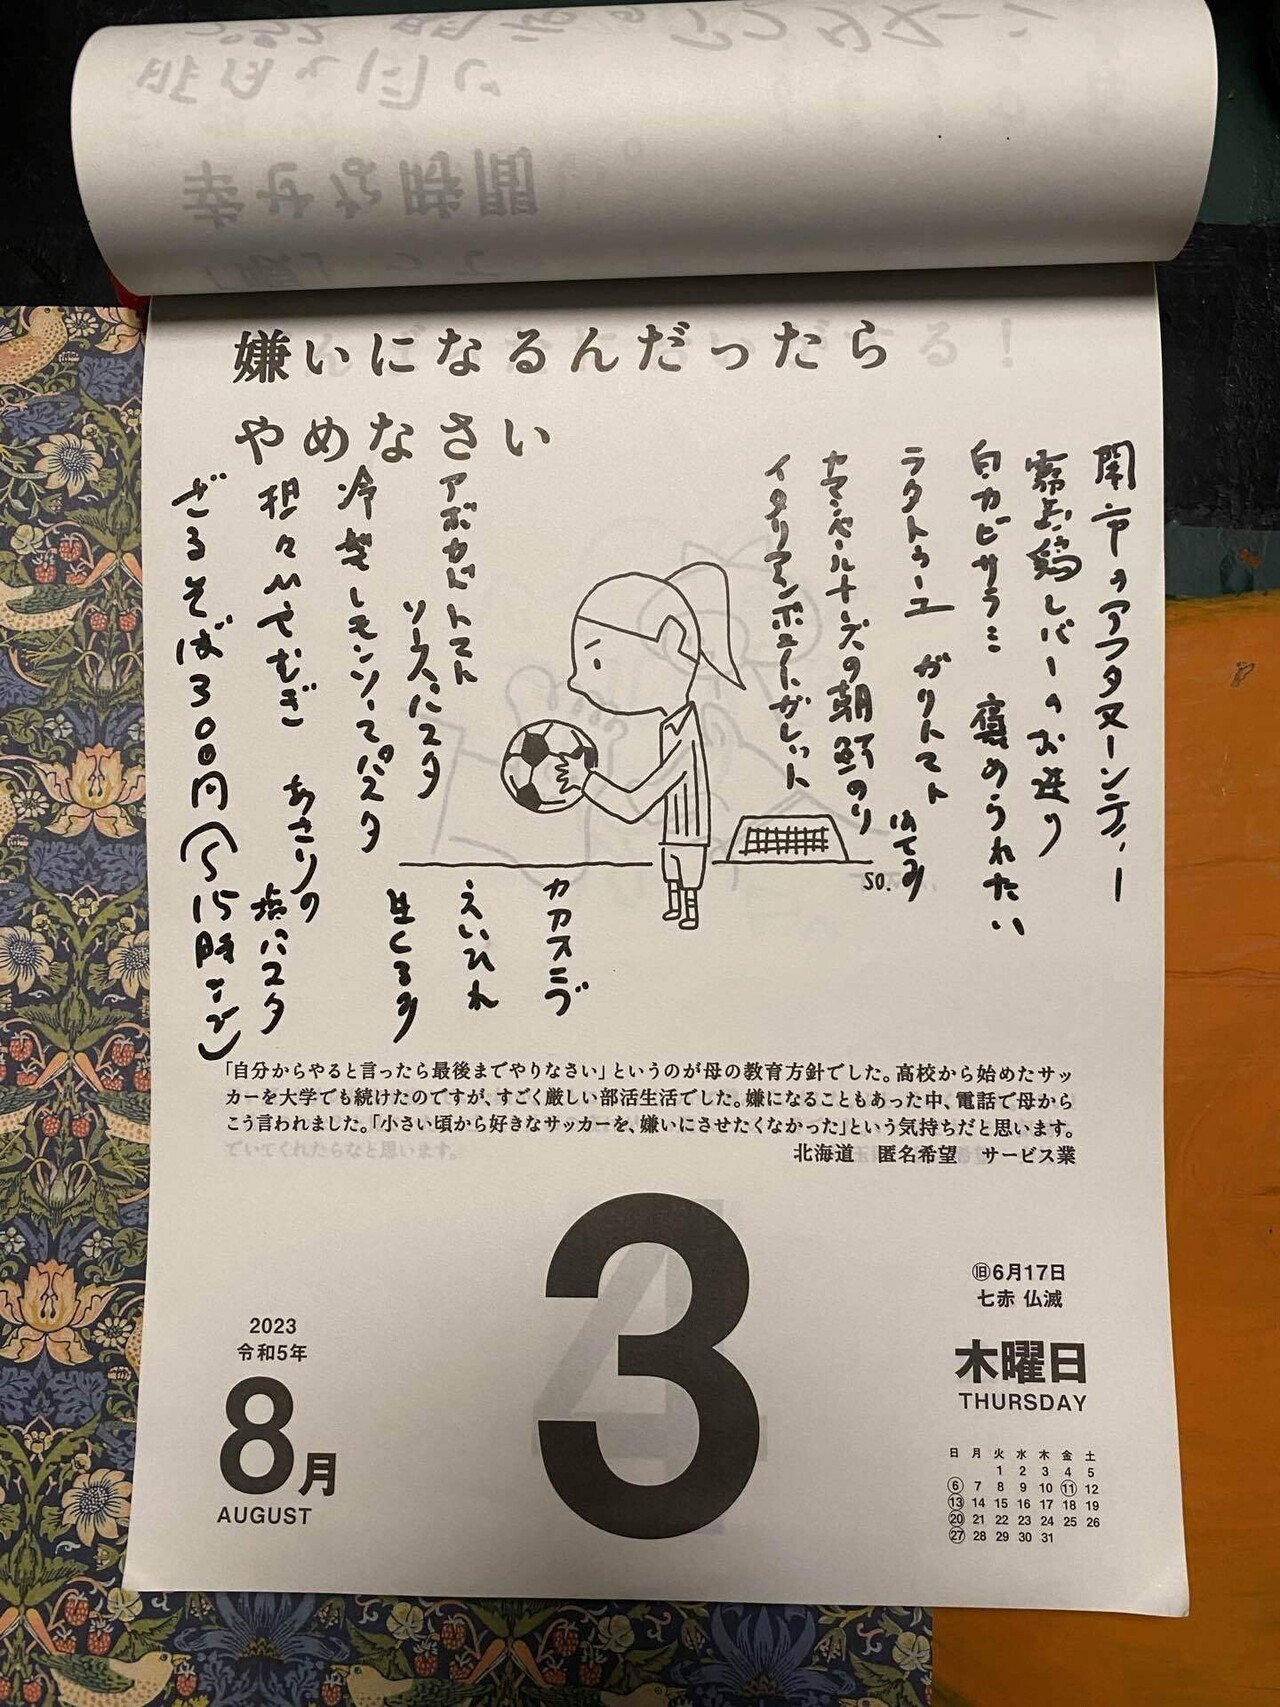 嫌いになるんだったら
やめなさい
開市のアフタヌーンティー
レバーのお造り
白カビサラミ 褒められたい
ラタトゥーユ ガリトマト
ヤマンベールチーズの朝鮮のり
イタリアンポークガレット
アボカドトマト
ソースパスタ
冷製レモンソースパスタ
担々ひやむぎ あさりの
塩パスタ
ざるそば300円(〜15時まで)
カプスニブ
えいひれ
生くるみ
so.
「自分からやると言ったら最後までやりなさい」というのが母の教育方針でした。高校から始めたサッ
カーを大学でも続けたのですが、すごく厳しい部活生活でした。嫌になることもあった中、電話で母から
こう言われました。「小さい頃から好きなサッカーを、嫌いにさせたくなかった」という気持ちだと思います。
北海道 匿名希望 サービス業
3
2023
令和5年
8月
AUGUST
旧6月17日
七赤 仏滅
木曜日
THURSDAY
日 月 火 水 木 金 土
1 2 3 4 5
6 7 8 9 10 11 12
13 14 15 16 17 18 19
20 21 22 23 24 25 26
27 28 29 30 31